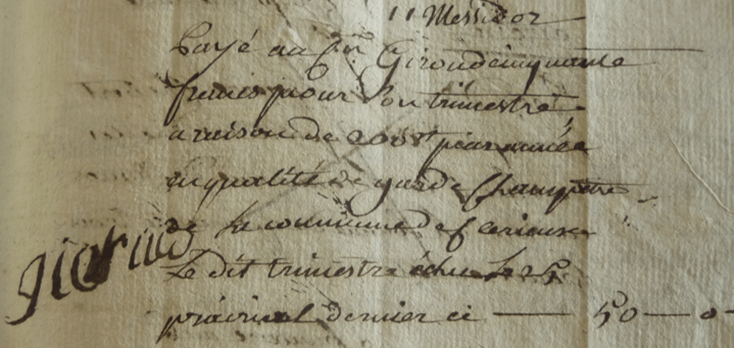 11 Messidor
Payé au Cn Giroud cinquante
francs pour son trimestre
a raison de 200# par année
en qualité de garde Champetre
de la commune de
Le dit trimestre échu le 25
prairial dernier ci — 50 — 0